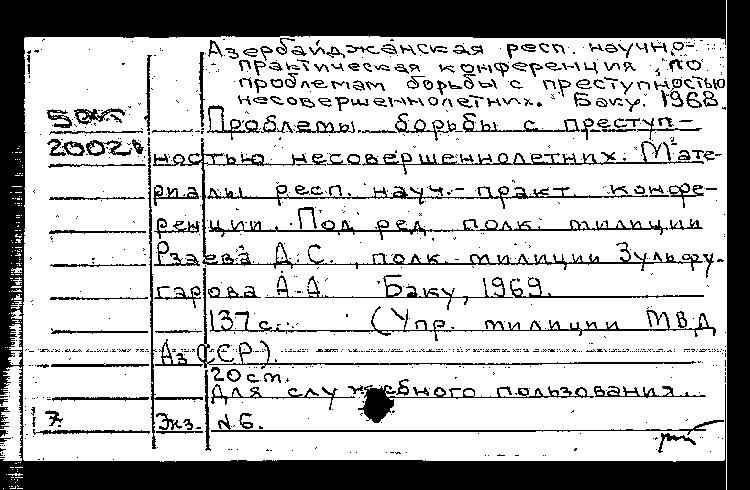 Азербайджанская респ. научно-
практическая конференция по
проблемам борьбы с преступностью
несовершеннолетних. Баку. 1968.
Проблемы борьбы с преступ-
2002
ностью несовершеннолетних. Мате-
риалы респ. науч.-практ. конфе-
ренции. Под ред. полк. милиции
Рзаева Д.С., полк. милиции Зульфу-
гарова А.А. Баку, 1969.
137 с. (Упр. милиции МВД
Аз ССР).
20 см.
Для служебного пользования.
7 Экз. №6.